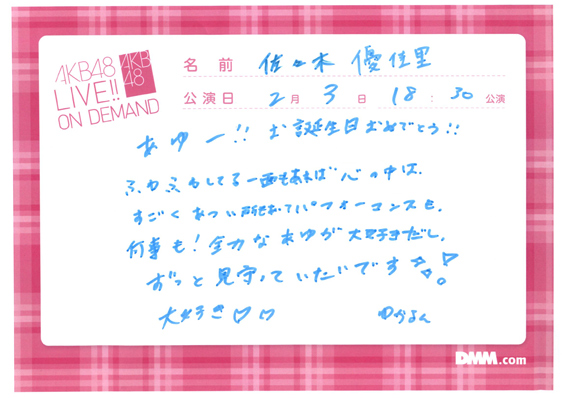 AKB48
LIVE!!
ON DEMAND
AKB
48
名前 佐々木 優佳里
公演日 2月 3日 18:30公演
あゆー!! お誕生日おめでとう!!
ふわふわしてる一面もあれば心の中は、
すごくあつい所もあってパフォーマンスも、
何事も!全力なあゆが大好きだし、
ずっと見守っていたいです♡。
大好き♡♡ ゆかるん
DMM.com